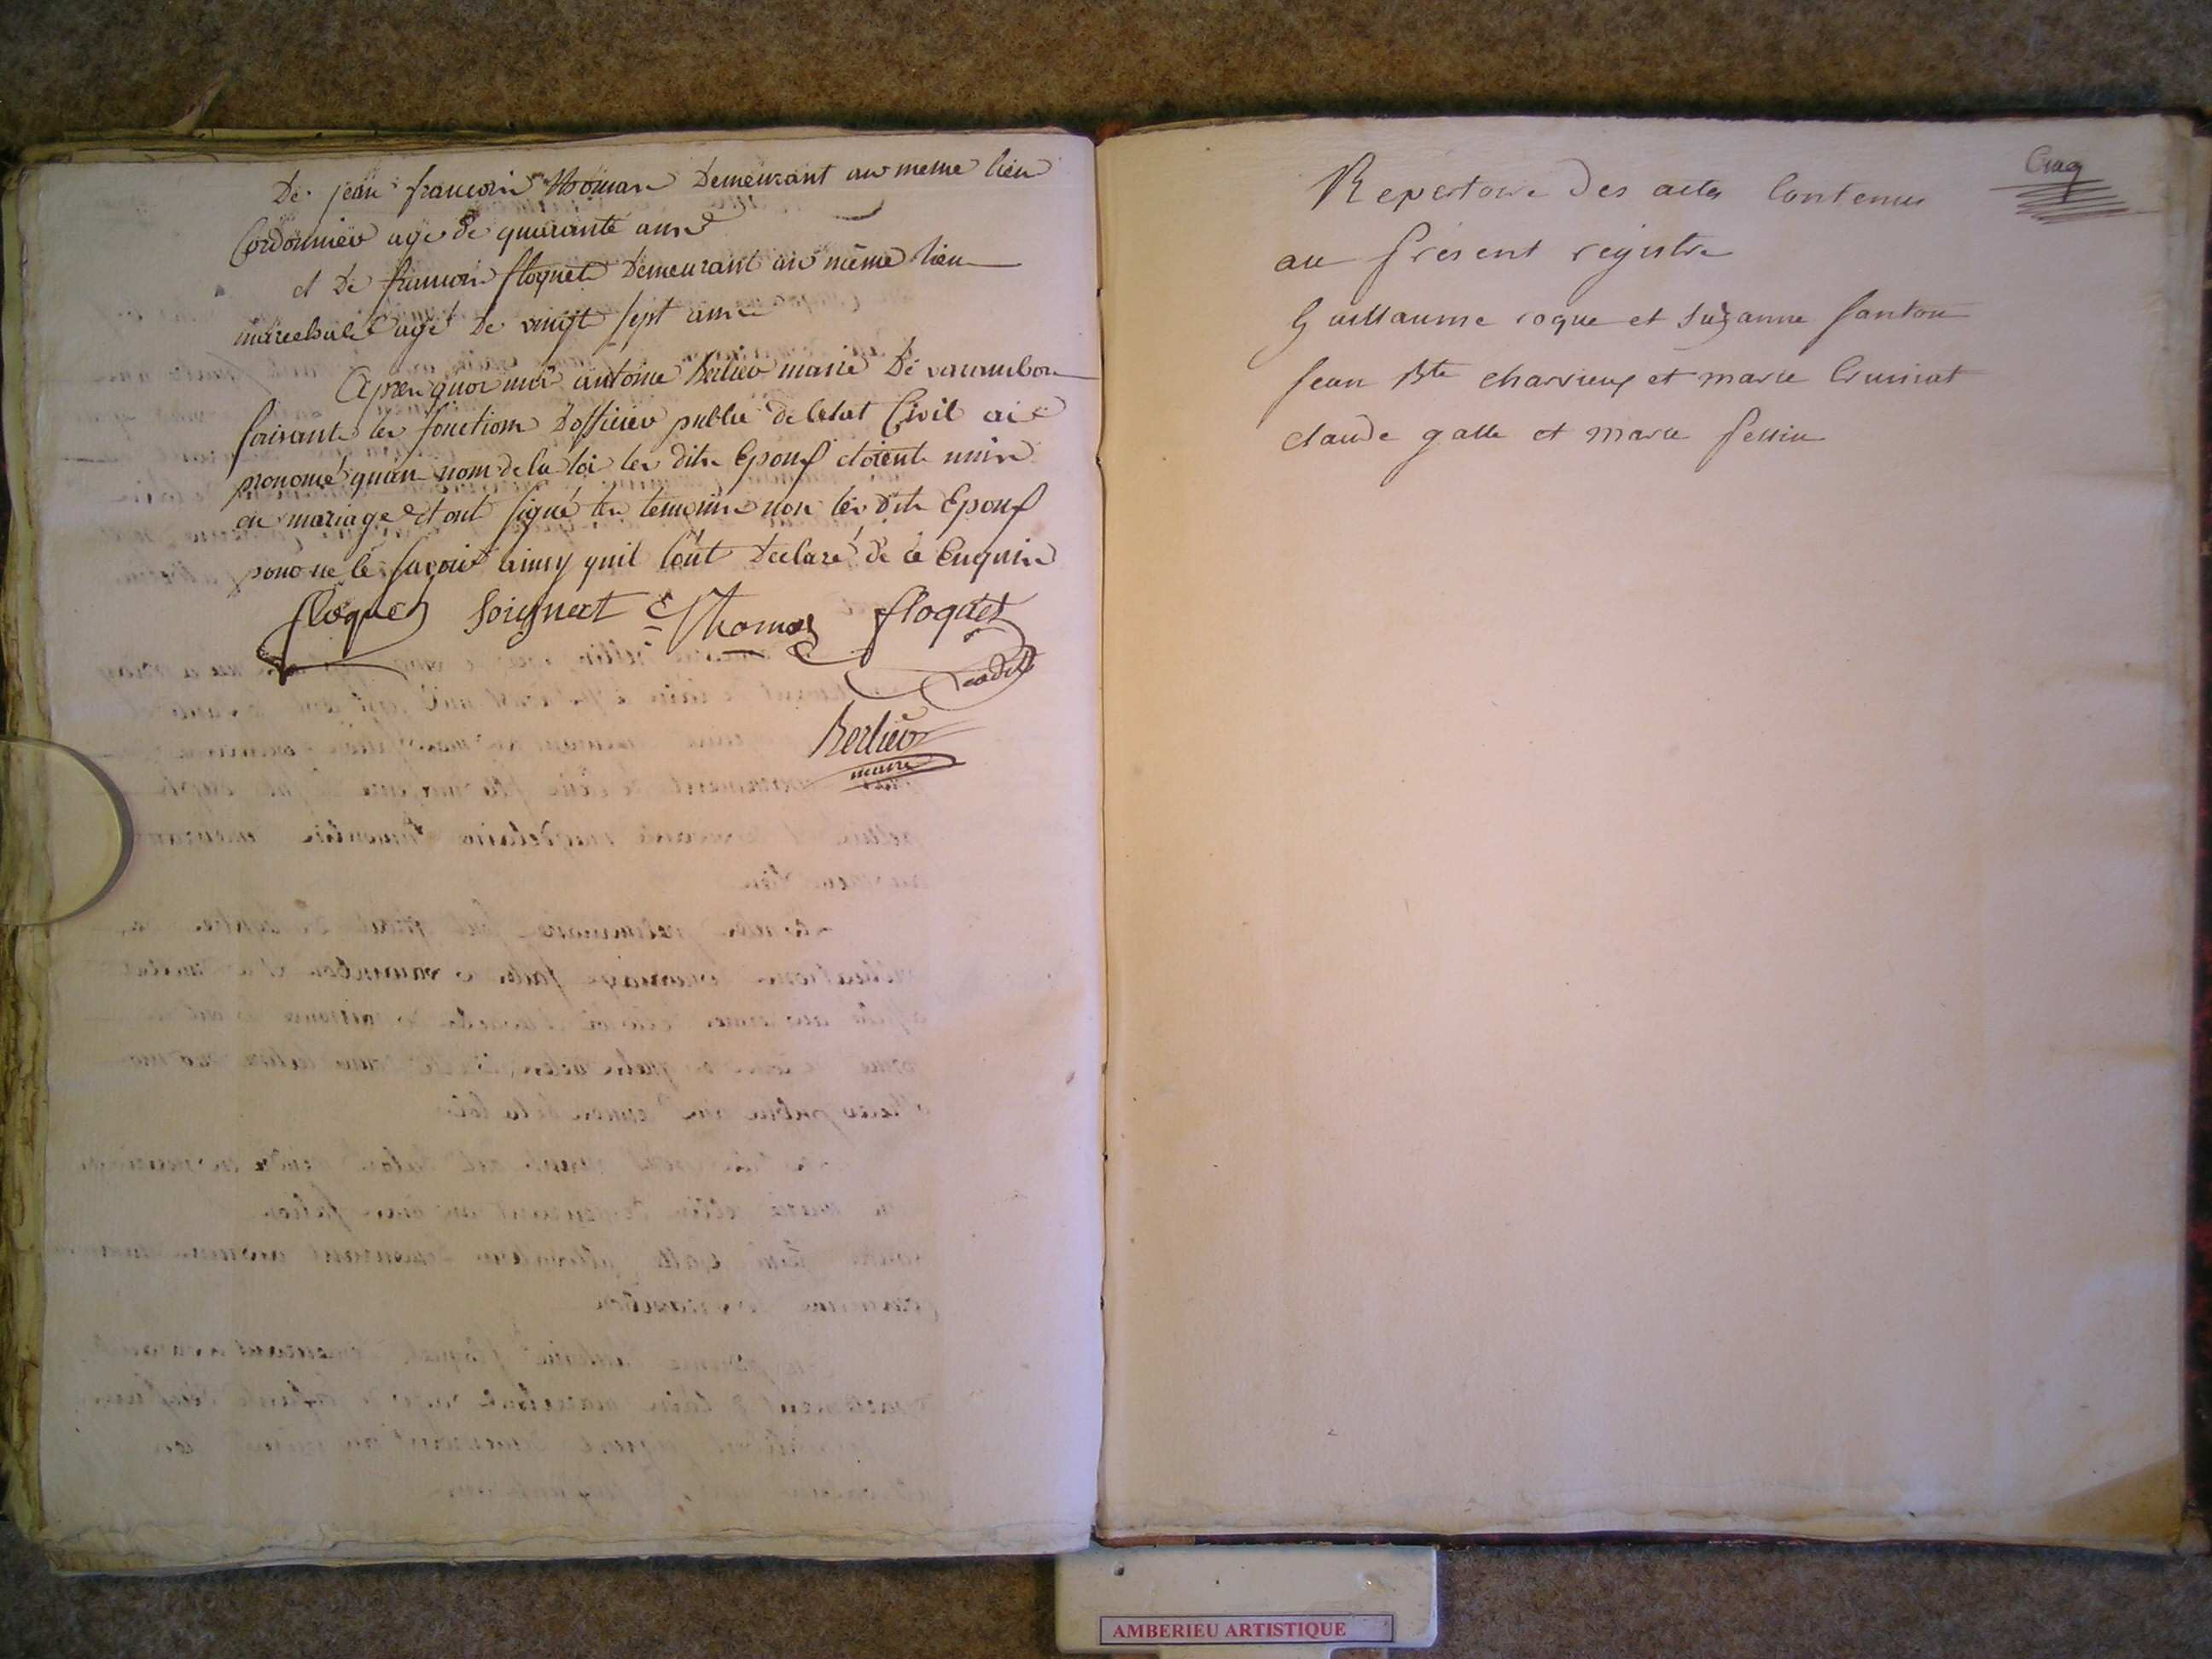 De jean francois thomas Demeurant au meme lieu
Cordonnier agé de quarante ans
et De francois floquet Demeurant au même lieu
marechal agé De vingt sept ans
Apres quoi moi antoine Berlier maire De varambon
faisant les fonctions D'officier public de letat Civil ai
prononcé quau nom de la loi les dits Epoux etoient unis
en mariage et ont signé les temoins non les dits Epoux
pour ne le savoir ainsy quil lont Declaré de ce Enquis
floquet soignert thomas floquet
Cadet
Berlier
maire
Cinq
Repertoire Des actes Contenus
au present registre
Guillaume roque et Suzanne fanton
jean Bte charvieux et marie
claude galle et marie fellin
AMBERIEU ARTISTIQUE